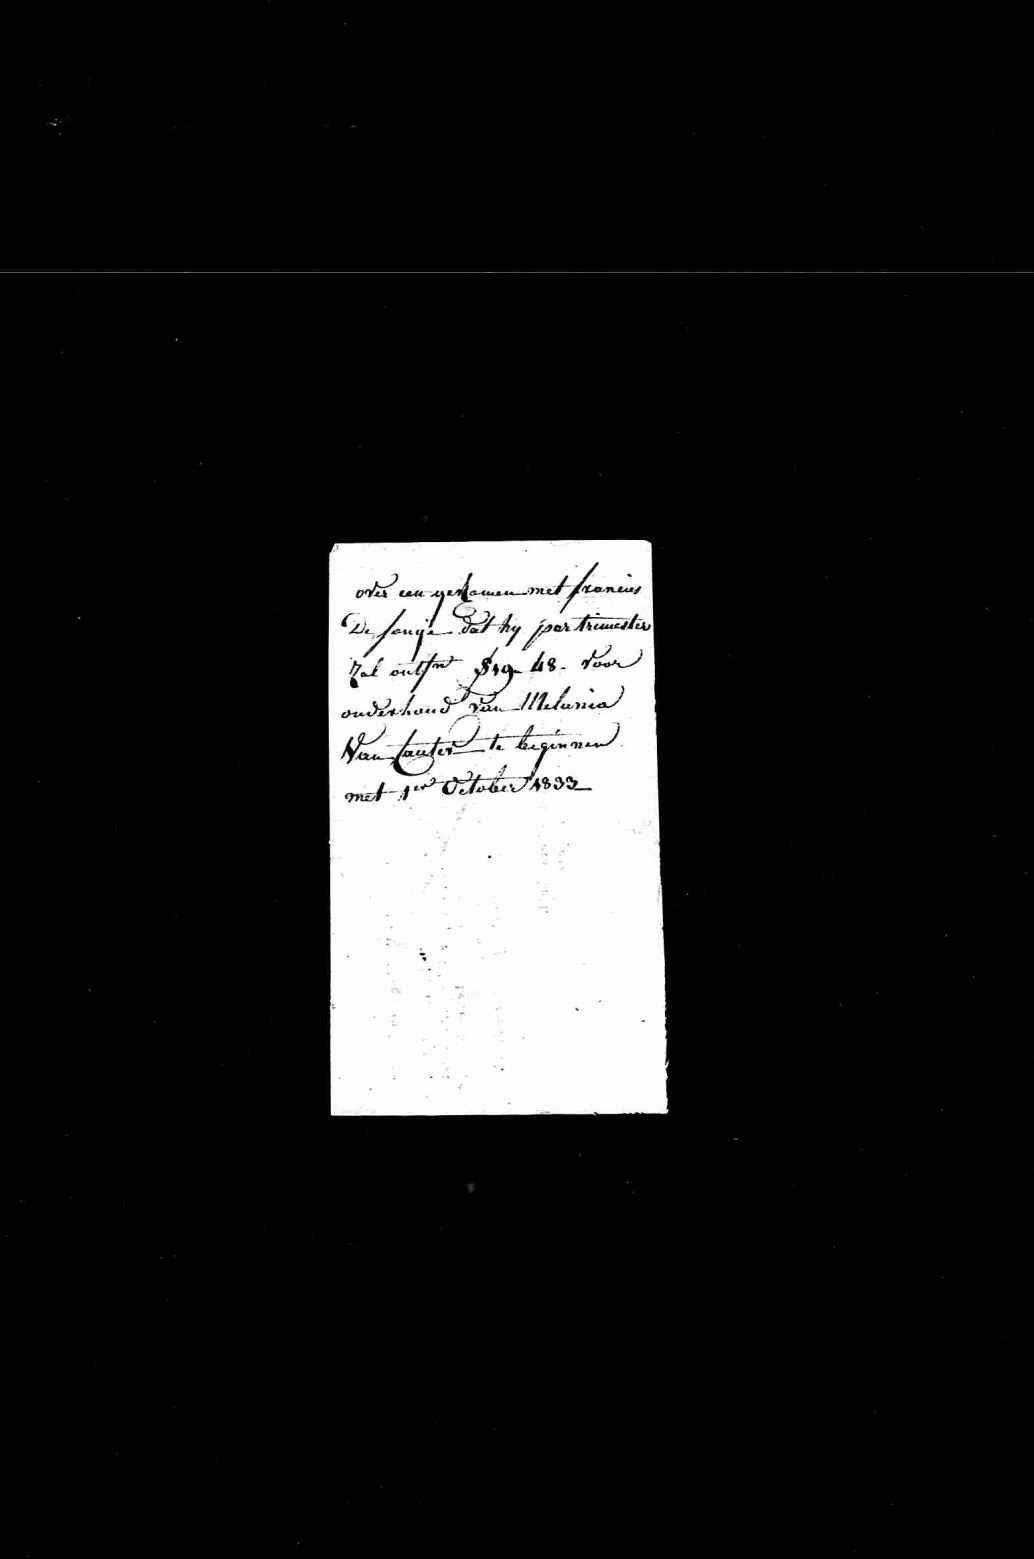 over een gekomen met francies
De Jonge dat hy par trimester
Zal ontfn 19-48- voor
onderhoud van Melania
Van Cauter te beginnen
met 1er October 1833